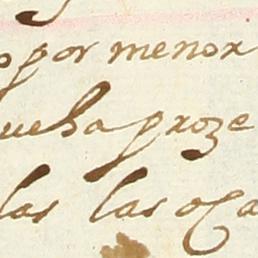 por menor
ueba proze
las las oca